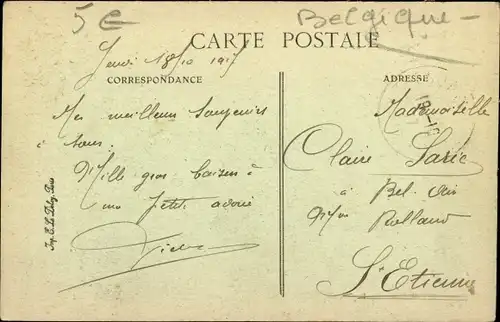 5 €
Belgique
CARTE POSTALE
Jeudi 18/10 1917
CORRESPONDANCE
Mes meilleurs Souvenirs
à tous.
Mille gros baisers à
mon Petit adoré
Imp. E. Le Deley, Paris
ADRESSE
Mademoiselle
Claire
à Bel-Air
Rolland
St Etienne